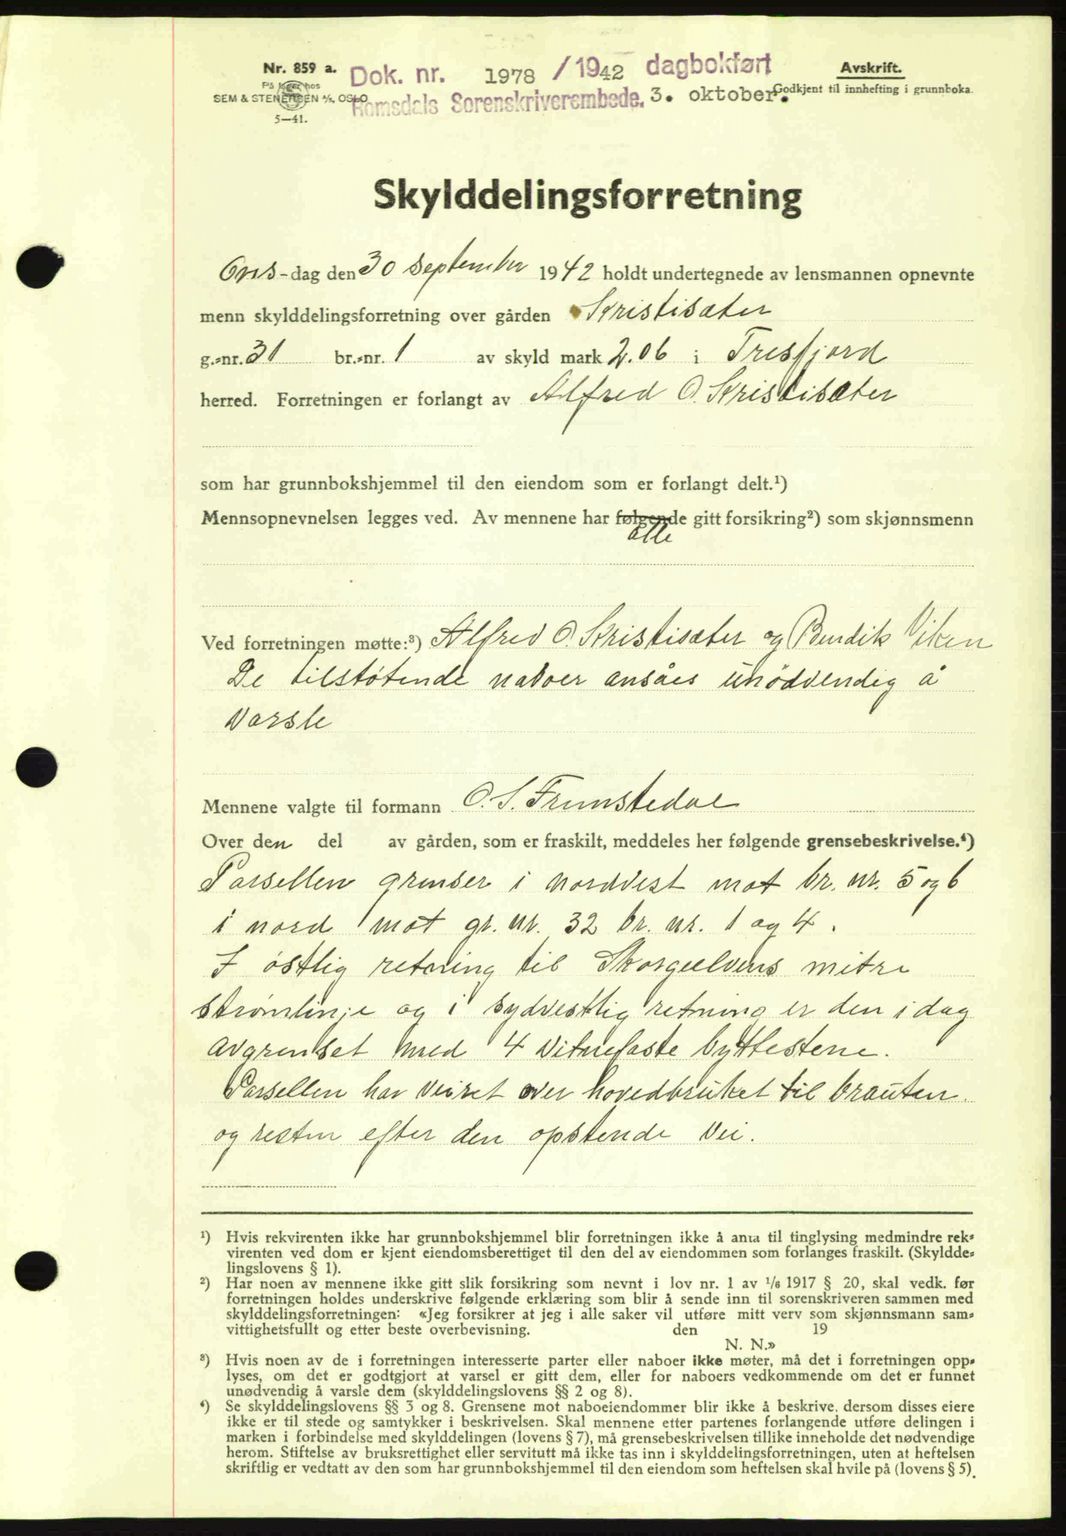 Nr. 859 a.
På lager hos
SEM & STENERSEN A/S, OSLO
5—41.
Dok. nr. 1978 / 1942 dagbokført
Romsdals Sorenskriverembede. 3. oktober.
Avskrift.
Godkjent til innhefting i grunnboka.
Skylddelingsforretning
Ons-dag den 30 september 1942 holdt undertegnede av lensmannen opnevnte
menn skylddelingsforretning over gården Kristisæter
g.-nr. 31 br.-nr. 1 av skyld mark 2.06 i Tresfjord
herred. Forretningen er forlangt av Alfred O. Kristisæter
som har grunnbokshjemmel til den eiendom som er forlangt delt.¹)
Mennsopnevnelsen legges ved. Av mennene har følgende gitt forsikring²) som skjønnsmenn
alle
Ved forretningen møtte:³) Alfred O. Kristisæter og Bendik Viken
De tilstøtende naboer ansåes unødvendig å
varsle
Mennene valgte til formann O. S. Frunstedal
Over den del av gården, som er fraskilt, meddeles her følgende grensebeskrivelse.⁴)
Parsellen grenser i nordvest mot br. nr. 5 og 6
i nord mot gr. nr. 32 br. nr. 1 og 4.
I østlig retning til Skorgeelvens mitre
strømlinje og i sydvestlig retning er den i dag
avgrenset med 4 vitnefaste byttestene.
Parsellen har veiret over hovedbruket til brauten
og resten efter den opstende vei.
¹) Hvis rekvirenten ikke har grunnbokshjemmel blir forretningen ikke å anta til tinglysing medmindre rek-
virenten ved dom er kjent eiendomsberettiget til den del av eiendommen som forlanges fraskilt. (Skyldde-
lingslovens § 1).
²) Har noen av mennene ikke gitt slik forsikring som nevnt i lov nr. 1 av ¹/₆ 1917 § 20, skal vedk. før
forretningen holdes underskrive følgende erklæring som blir å sende inn til sorenskriveren sammen med
skylddelingsforretningen: «Jeg forsikrer at jeg i alle saker vil utføre mitt verv som skjønnsmann sam-
vittighetsfullt og etter beste overbevisning. den 19
N. N.»
³) Hvis noen av de i forretningen interesserte parter eller naboer ikke møter, må det i forretningen opp-
lyses, om det er godtgjort at varsel er gitt dem, eller for naboers vedkommende om det er funnet
unødvendig å varsle dem (skylddelingslovens §§ 2 og 8).
⁴) Se skylddelingslovens §§ 3 og 8. Grensene mot naboeiendommer blir ikke å beskrive, dersom disses eiere
ikke er til stede og samtykker i beskrivelsen. Skal mennene etter partenes forlangende utføre delingen i
marken i forbindelse med skylddelingen (lovens § 7), må grensebeskrivelsen tillike inneholde det nødvendige
herom. Stiftelse av bruksrettighet eller servitutt må ikke tas inn i skylddelingsforretningen, uten at heftelsen
skriftlig er vedtatt av den som har grunnbokshjemmel til den eiendom som heftelsen skal hvile på (lovens § 5).